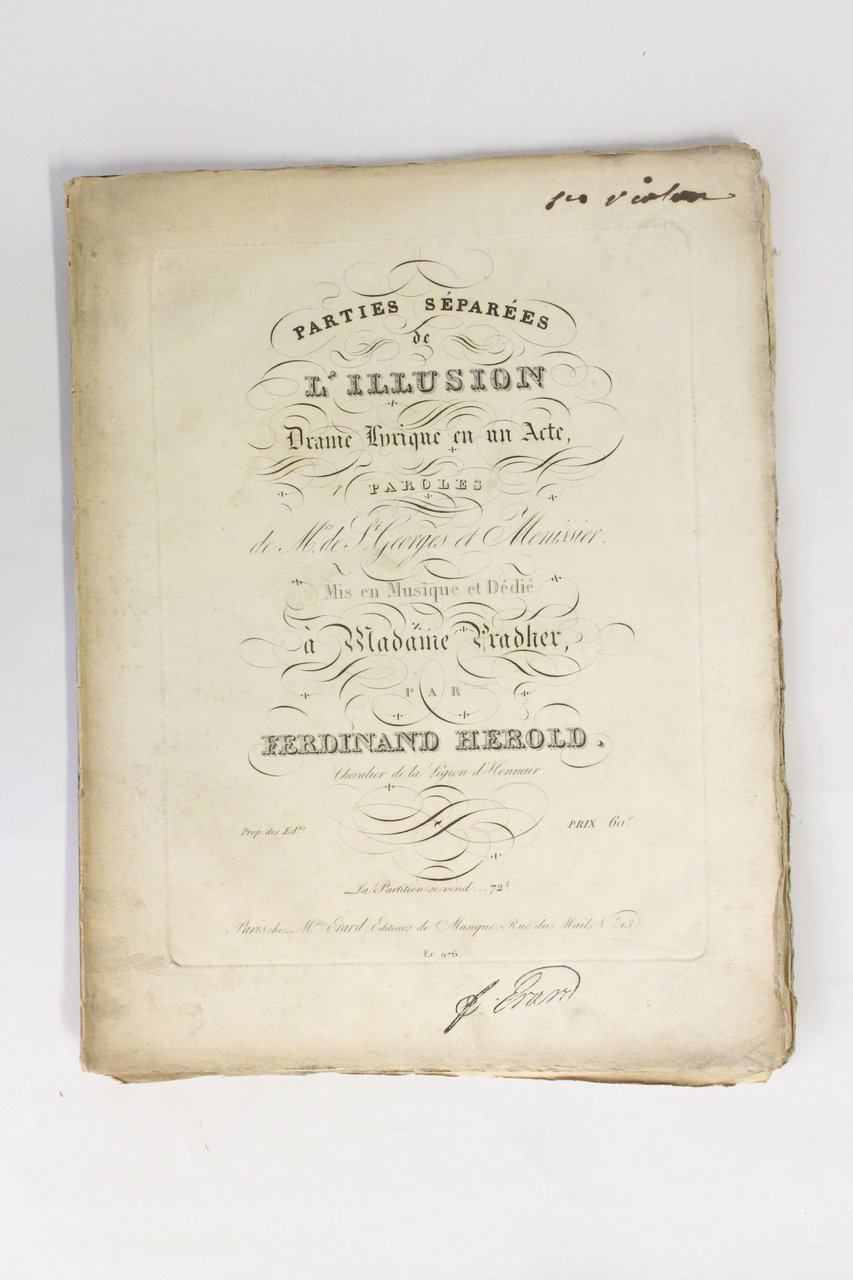 violon
PARTIES SÉPARÉES
de
L'ILLUSION
Drame Lyrique en un Acte,
PAROLES
de Mrs de St Georges et Menissier.
Mis en Musique et Dédié
à Madame Pradher,
PAR
FERDINAND HEROLD.
Chevalier de la Légion d'Honneur
Prop. des Edrs
PRIX 60f.
La Partition se vend... 72f.
Paris chez Mlles Erard, Editeurs de Musique, Rue du Mail, No 13
Er. 976.
Erard